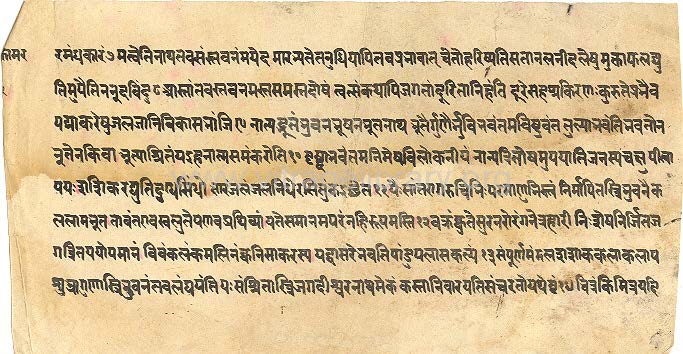 रमंधकारं७ मत्वेतिनाथतवसंस्तवनंमयेद मारभ्यतेतनुधियापितवप्रभावात् चेतोहरिष्यतिसतांनलनीदलेषु मुक्ताफलद्यु
तिमुपैतिननूदबिंदुः८ आस्तांतवस्तवनमस्तसमस्तदोषं त्वत्संकथापिजगतांदुरितानिहंति दूरेसहस्रकिरणः कुरुतेप्रभैव
पद्माकरेषुजलजानिविकासभांजि ९ नात्यद्भुतंभुवनभूषनभूतनाथ भूतैर्गुणैर्भुविभवंतमभिष्टुवंतः तुल्याभवंतिभवतोन
नुतेनकिंवा भूत्याश्रितंयइहनात्मसमंकरोति१० दृष्ट्वाभवंतमनिमेषविलोकनीयं नान्यत्रतोषमुपयातिजनस्यचक्षुः पीत्वा
पयःशशिकरद्युतिदुग्धसिंधोः क्षारंजलंजलनिधेरसितुंकइच्छेत् ११ यैःशांतरागरुचिभिःपरमाणुभिस्त्वं निर्मापितस्त्रिभुवनैक
ललामभूत तावंतएवखलुतेप्यणवःपृथिव्यां यत्तेसमानमपरंनहिरूपमस्ति१२ वक्त्रंक्वतेसुरनरोरगनेत्रहारी निःशेषनिर्जितज
गत्त्रितयोपमानं बिंबंकलंकमलिनंक्वनिशाकरस्य यद्वासरेभवतिपांडुपलासकल्पं १३ संपूर्णमंडलशशांककलाकलाप
शुभ्रागुणास्त्रिभुवनंतवलंघयंति येसंश्रितास्त्रिजगदीश्वरनाथमेकं कस्तान्निवारयतिसंचरतोयथेष्टं१४ चित्रंकिमत्रयदि